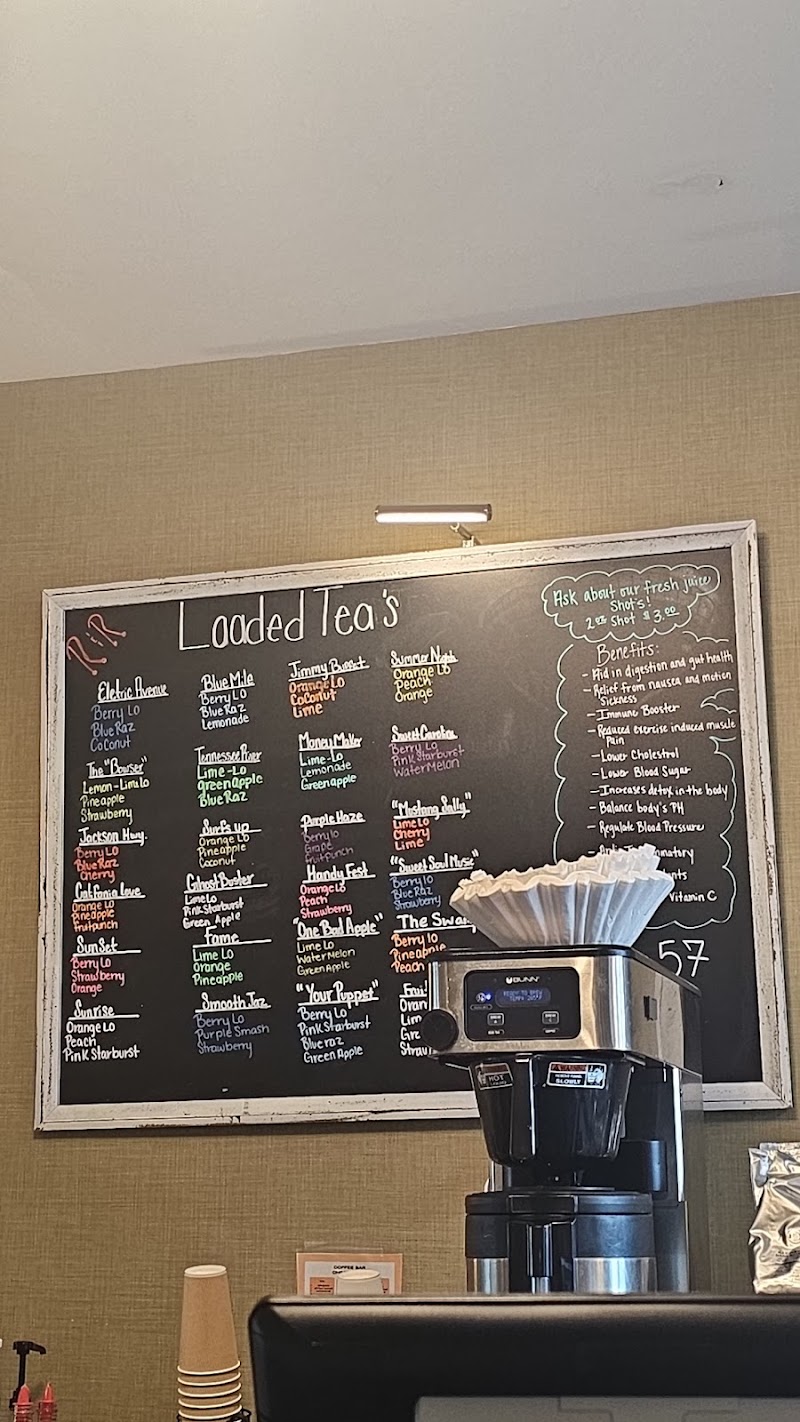 Loaded Tea's
Eletric Avenue
Berry LO
Blue Raz
Coconut
The "Bowser"
Lemon-Lime Lo
Pineapple
Strawberry
Jackson Hwy.
Berry LO
Blue Raz
Cherry
Orange LO
Pineapple
Fruitpunch
SunSet
Berry LO
Strawberry
Orange
Sunrise
Orange LO
Peach
Pink Starburst
Blue Mile
Berry LO
Blue Raz
Lemonade
Lime-LO
Green apple
Blue Raz
Surf's up
Orange LO
Pineapple
Coconut
Ghost Buster
Lime Lo
Pink Starburst
Green Apple
Fame
Lime LO
Orange
Pineapple
Smooth Jaz
Berry LO
Purple Smash
Strawberry
Jimmy Buffet
Orange LO
Coconut
Lime
Money Maker
Lime-LO
Lemonade
Green apple
Purple Haze
Berry lo
Grape
Fruitpunch
Handy Fest
Orange LO
Peach
Strawberry
"One Bad Apple"
Lime LO
Watermelon
Green Apple
"Your Pupper"
Berry LO
Pink Starburst
Blue raz
Green Apple
Summer Nights
Orange LO
Peach
Orange
Sweet Carolina
Berry LO
Pink Starburst
Watermelon
"Mustang Sally"
Lime LO
Cherry
Lime
"Sweet Soul Music"
Berry lo
Blue Raz
Strawberry
The Swa
Berry lo
Pineapple
Peach
Ask about our fresh juice
Shots!
2 oz Shot $3.00
Benefits:
- Aid in digestion and gut health
- Relief from nausea and motion
Sickness
- Immune Booster
- Reduced exercise induced muscle
Pain
- Lower Cholestrol
- Lower Blood Sugar
- Increases detox in the body
- Balance body's PH
- Regulate Blood Pressure
Vitamin C
57
BUNN
READY TO BREW
HOT
SLOWLY
COFFEE BAR